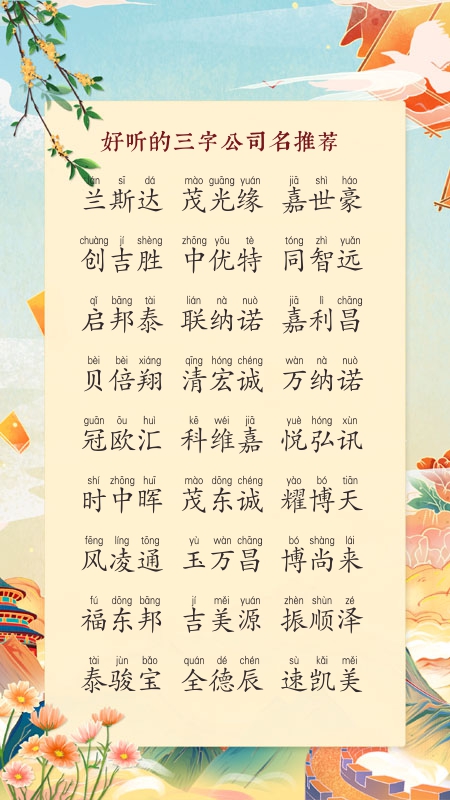 好听的三字公司名推荐
lán sī dá mào guāng yuán jiā shì háo
兰斯达 茂光缘 嘉世豪
chuàng jí shèng zhōng yōu tè tóng zhì yuǎn
创吉胜 中优特 同智远
qǐ bāng tài lián nà nuò jiā lì chāng
启邦泰 联纳诺 嘉利昌
bèi bèi xiáng qīng hóng chéng wàn nà nuò
贝倍翔 清宏诚 万纳诺
guān ōu huì kē wéi jiā yuè hóng xùn
冠欧汇 科维嘉 悦弘讯
shí zhōng huī mào dōng chéng yào bó tiān
时中晖 茂东诚 耀博天
fēng líng tōng yù wàn chāng bó shàng lái
风凌通 玉万昌 博尚来
fú dōng bāng jí měi yuán zhèn shùn zé
福东邦 吉美源 振顺泽
tài jùn bǎo quán dé chén sù kǎi měi
泰骏宝 全德辰 速凯美